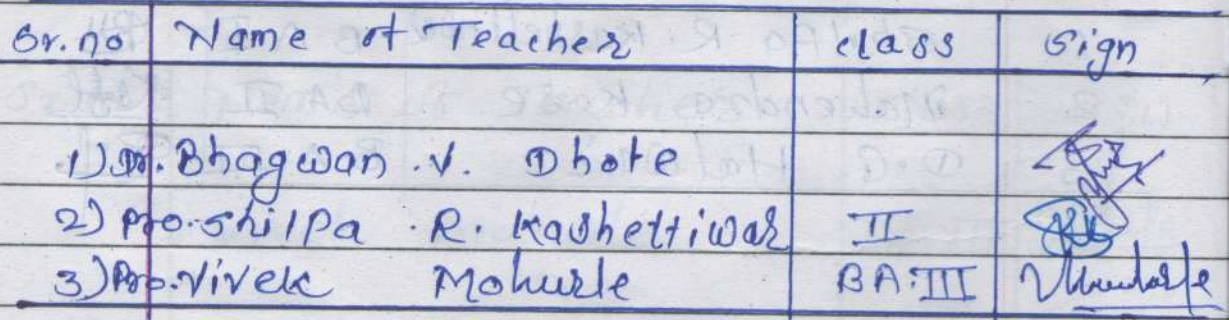 Sr.no Name of Teacher class Sign
1) Dr. Bhagwan .V. Dhote
2) Pro. Shilpa .R. Kashettiwar II
3) Pro. Vivek Mohurle BA:III